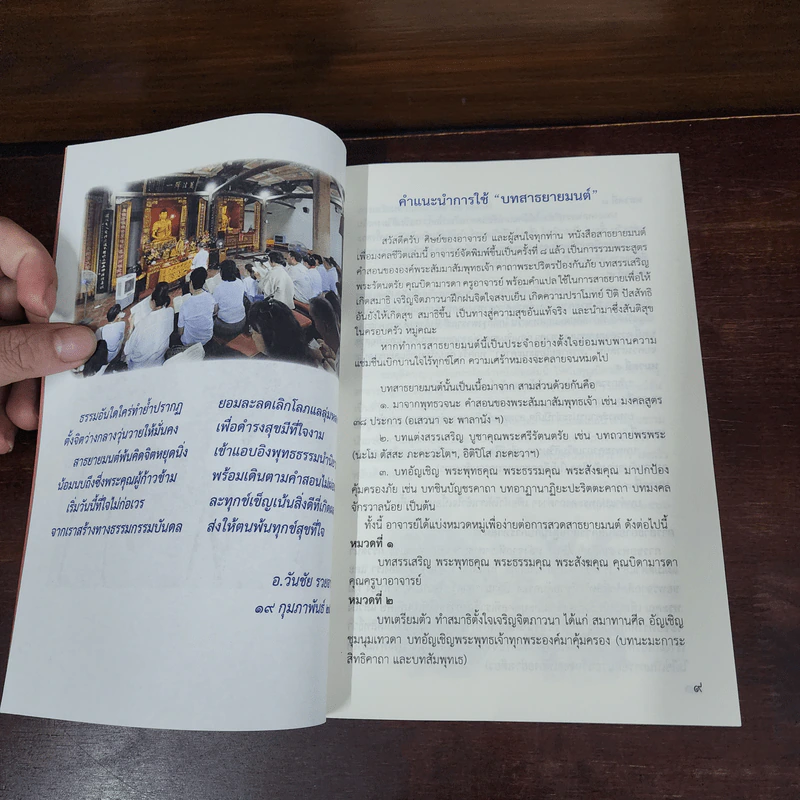 ธรรมอันใดใครทำย้ำปรากฏ
ตั้งจิตวางกลางวุ่นวายให้มั่นคง
สาธยายมนต์พ้นคิดจิตหยุดนิ่ง
น้อมนบถึงซึ่งพระคุณผู้ก้าวข้าม
เริ่มวันนี้ที่ใจไม่ก่อเวร
จากเราสร้างทางธรรมกรรมบันดล
ยอมละลดเลิกโลภแลลุ่มหลง
เพื่อดำรงสุขมีที่ใจงาม
เข้าแอบอิงพุทธธรรมนำ
พร้อมเดินตามคำสอน
ละทุกข์เข็ญเน้นสิ่งดีที่เกิด
ส่งให้ตนพ้นทุกข์สุขที่ใจ
อ.วันชัย
๑๙ กุมภาพันธ์
คำแนะนำการใช้ “บทสาธยายมนต์”
สวัสดีครับ ศิษย์ของอาจารย์ และผู้สนใจทุกท่าน หนังสือสาธยายมนต์
เพื่อมงคลชีวิตเล่มนี้ อาจารย์จัดพิมพ์ขึ้นเป็นครั้งที่ ๘ แล้ว เป็นการรวมพระสูตร
คำสอนขององค์พระสัมมาสัมพุทธเจ้า คาถาพระปริตรป้องกันภัย บทสรรเสริญ
พระรัตนตรัย คุณบิดามารดา ครูอาจารย์ พร้อมคำแปล ใช้ในการสาธยายเพื่อให้
เกิดสมาธิ เจริญจิตภาวนาฝึกฝนจิตใจสงบเย็น เกิดความปราโมทย์ ปิติ ปัสสัทธิ
อันยังให้เกิดสุข สมาธิขึ้น เป็นทางสู่ความสุขอันแท้จริง และนำมาซึ่งสันติสุข
ในครอบครัว หมู่คณะ
หากทำการสาธยายมนต์นี้เป็นประจำอย่างตั้งใจย่อมพบพานความ
แช่มชื่นเบิกบานใจไร้ทุกข์โศก ความเศร้าหมองจะคลายจนหมดไป
บทสาธยายมนต์นั้นเป็นเนื้อมาจาก สามส่วนด้วยกันคือ
๑. มาจากพุทธวจนะ คำสอนของพระสัมมาสัมพุทธเจ้า เช่น มงคลสูตร
๓๘ ประการ (อเสวนา จะ พาลานัง ฯ)
๒. บทแต่งสรรเสริญ บูชาคุณพระศรีรัตนตรัย เช่น บทถวายพรพระ
(นะโม ตัสสะ ภะคะวะโตฯ, อิติปิโส ภะคะวาฯ)
๓. บทอัญเชิญ พระพุทธคุณ พระธรรมคุณ พระสังฆคุณ มาปกป้อง
คุ้มครองภัย เช่น บทชินบัญชรคาถา บทอาฏานาฏิยะปะริตตะคาถา บทมงคล
จักรวาลน้อย เป็นต้น
ทั้งนี้ อาจารย์ได้แบ่งหมวดหมู่เพื่อง่ายต่อการสวดสาธยายมนต์ ดังต่อไปนี้
หมวดที่ ๑
บทสรรเสริญ พระพุทธคุณ พระธรรมคุณ พระสังฆคุณ คุณบิดามารดา
คุณครูบาอาจารย์
หมวดที่ ๒
บทเตรียมตัว ทำสมาธิตั้งใจเจริญจิตภาวนา ได้แก่ สมาทานศีล อัญเชิญ
ชุมนุมเทวดา บทอัญเชิญพระพุทธเจ้าทุกพระองค์มาคุ้มครอง (บทนะมะการะ
สิทธิคาถา และบทสัมพุทเธ)
๙